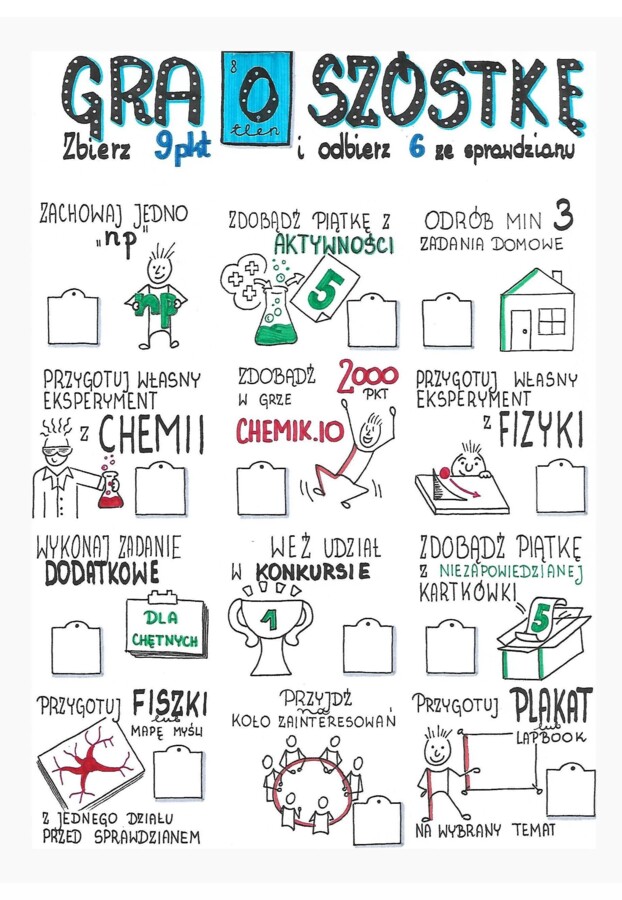 GRA 8 O tlen SZÓSTKĘ
Zbierz 9pkt i odbierz 6 ze sprawdzianu
ZACHOWAJ JEDNO
„np"
np
ZDOBĄDŹ PIĄTKĘ Z
AKTYWNOŚCI
5
ODRÓB MIN 3
ZADANIA DOMOWE
PRZYGOTUJ WŁASNY
EKSPERYMENT
Z CHEMII
ZDOBĄDŹ 2000
W GRZE PKT
CHEMIK.IO
PRZYGOTUJ WŁASNY
EKSPERYMENT
Z FIZYKI
WYKONAJ ZADANIE
DODATKOWE
DLA
CHĘTNYCH
WEŹ UDZIAŁ
W KONKURSIE
1
ZDOBĄDŹ PIĄTKĘ
Z NIEZAPOWIEDZIANEJ
KARTKÓWKI
5
PRZYGOTUJ FISZKI
lub
MAPĘ MYŚLI
Z JEDNEGO DZIAŁU
PRZED SPRAWDZIANEM
PRZYJDŹ
na
KOŁO ZAINTERESOWAŃ
PRZYGOTUJ PLAKAT
lub
LAPBOOK
NA WYBRANY TEMAT